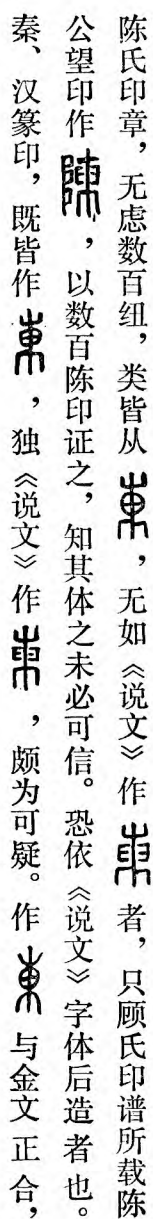 陈氏印章，无虑数百纽，类皆从，无如《说文》作者，只顾氏印谱所载陈
公望印作，以数百陈印证之，知其体之未必可信。恐依《说文》字体后造者也。
秦、汉篆印，既皆作，独《说文》作，颇为可疑。作与金文正合，